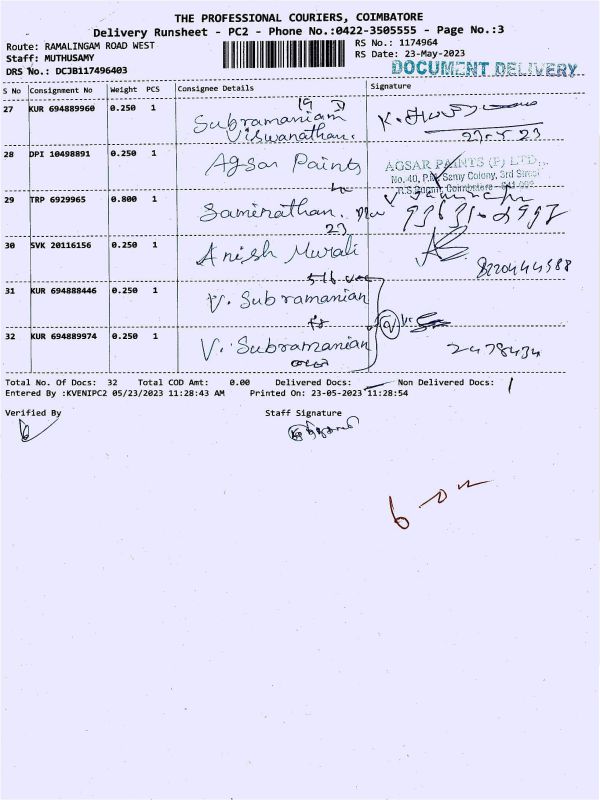 THE PROFESSIONAL COURIERS, COIMBATORE
Delivery Runsheet - PC2 - Phone No.:0422-3505555 - Page No.:3
Route: RAMALINGAM ROAD WEST RS No.: 1174964
Staff: MUTHUSAMY RS Date: 23-May-2023
DRS No.: DCJB117496403 DOCUMENT DELIVERY
S No Consignment No Weight PCS Consignee Details Signature
27 KUR 694889960 0.250 1 Subramaniam
Viswanathan.
28 DPI 10498891 0.250 1 Agsar Paints AGSAR PAINTS (P) LTD.,
No. 40, P.M. Samy Colony, 3rd Street
R.S.Puram, Coimbatore - 641 002
29 TRP 6929965 0.800 1 Saminathan.
23
30 SVK 20116156 0.250 1 Anish Murali 8220444588
31 KUR 694888446 0.250 1 V. Subramanian
32 KUR 694889974 0.250 1 V. Subramanian 2478434
Total No. Of Docs: 32 Total COD Amt: 0.00 Delivered Docs: Non Delivered Docs: 1
Entered By :KVENIPC2 05/23/2023 11:28:43 AM Printed On: 23-05-2023 11:28:54
Verified By Staff Signature